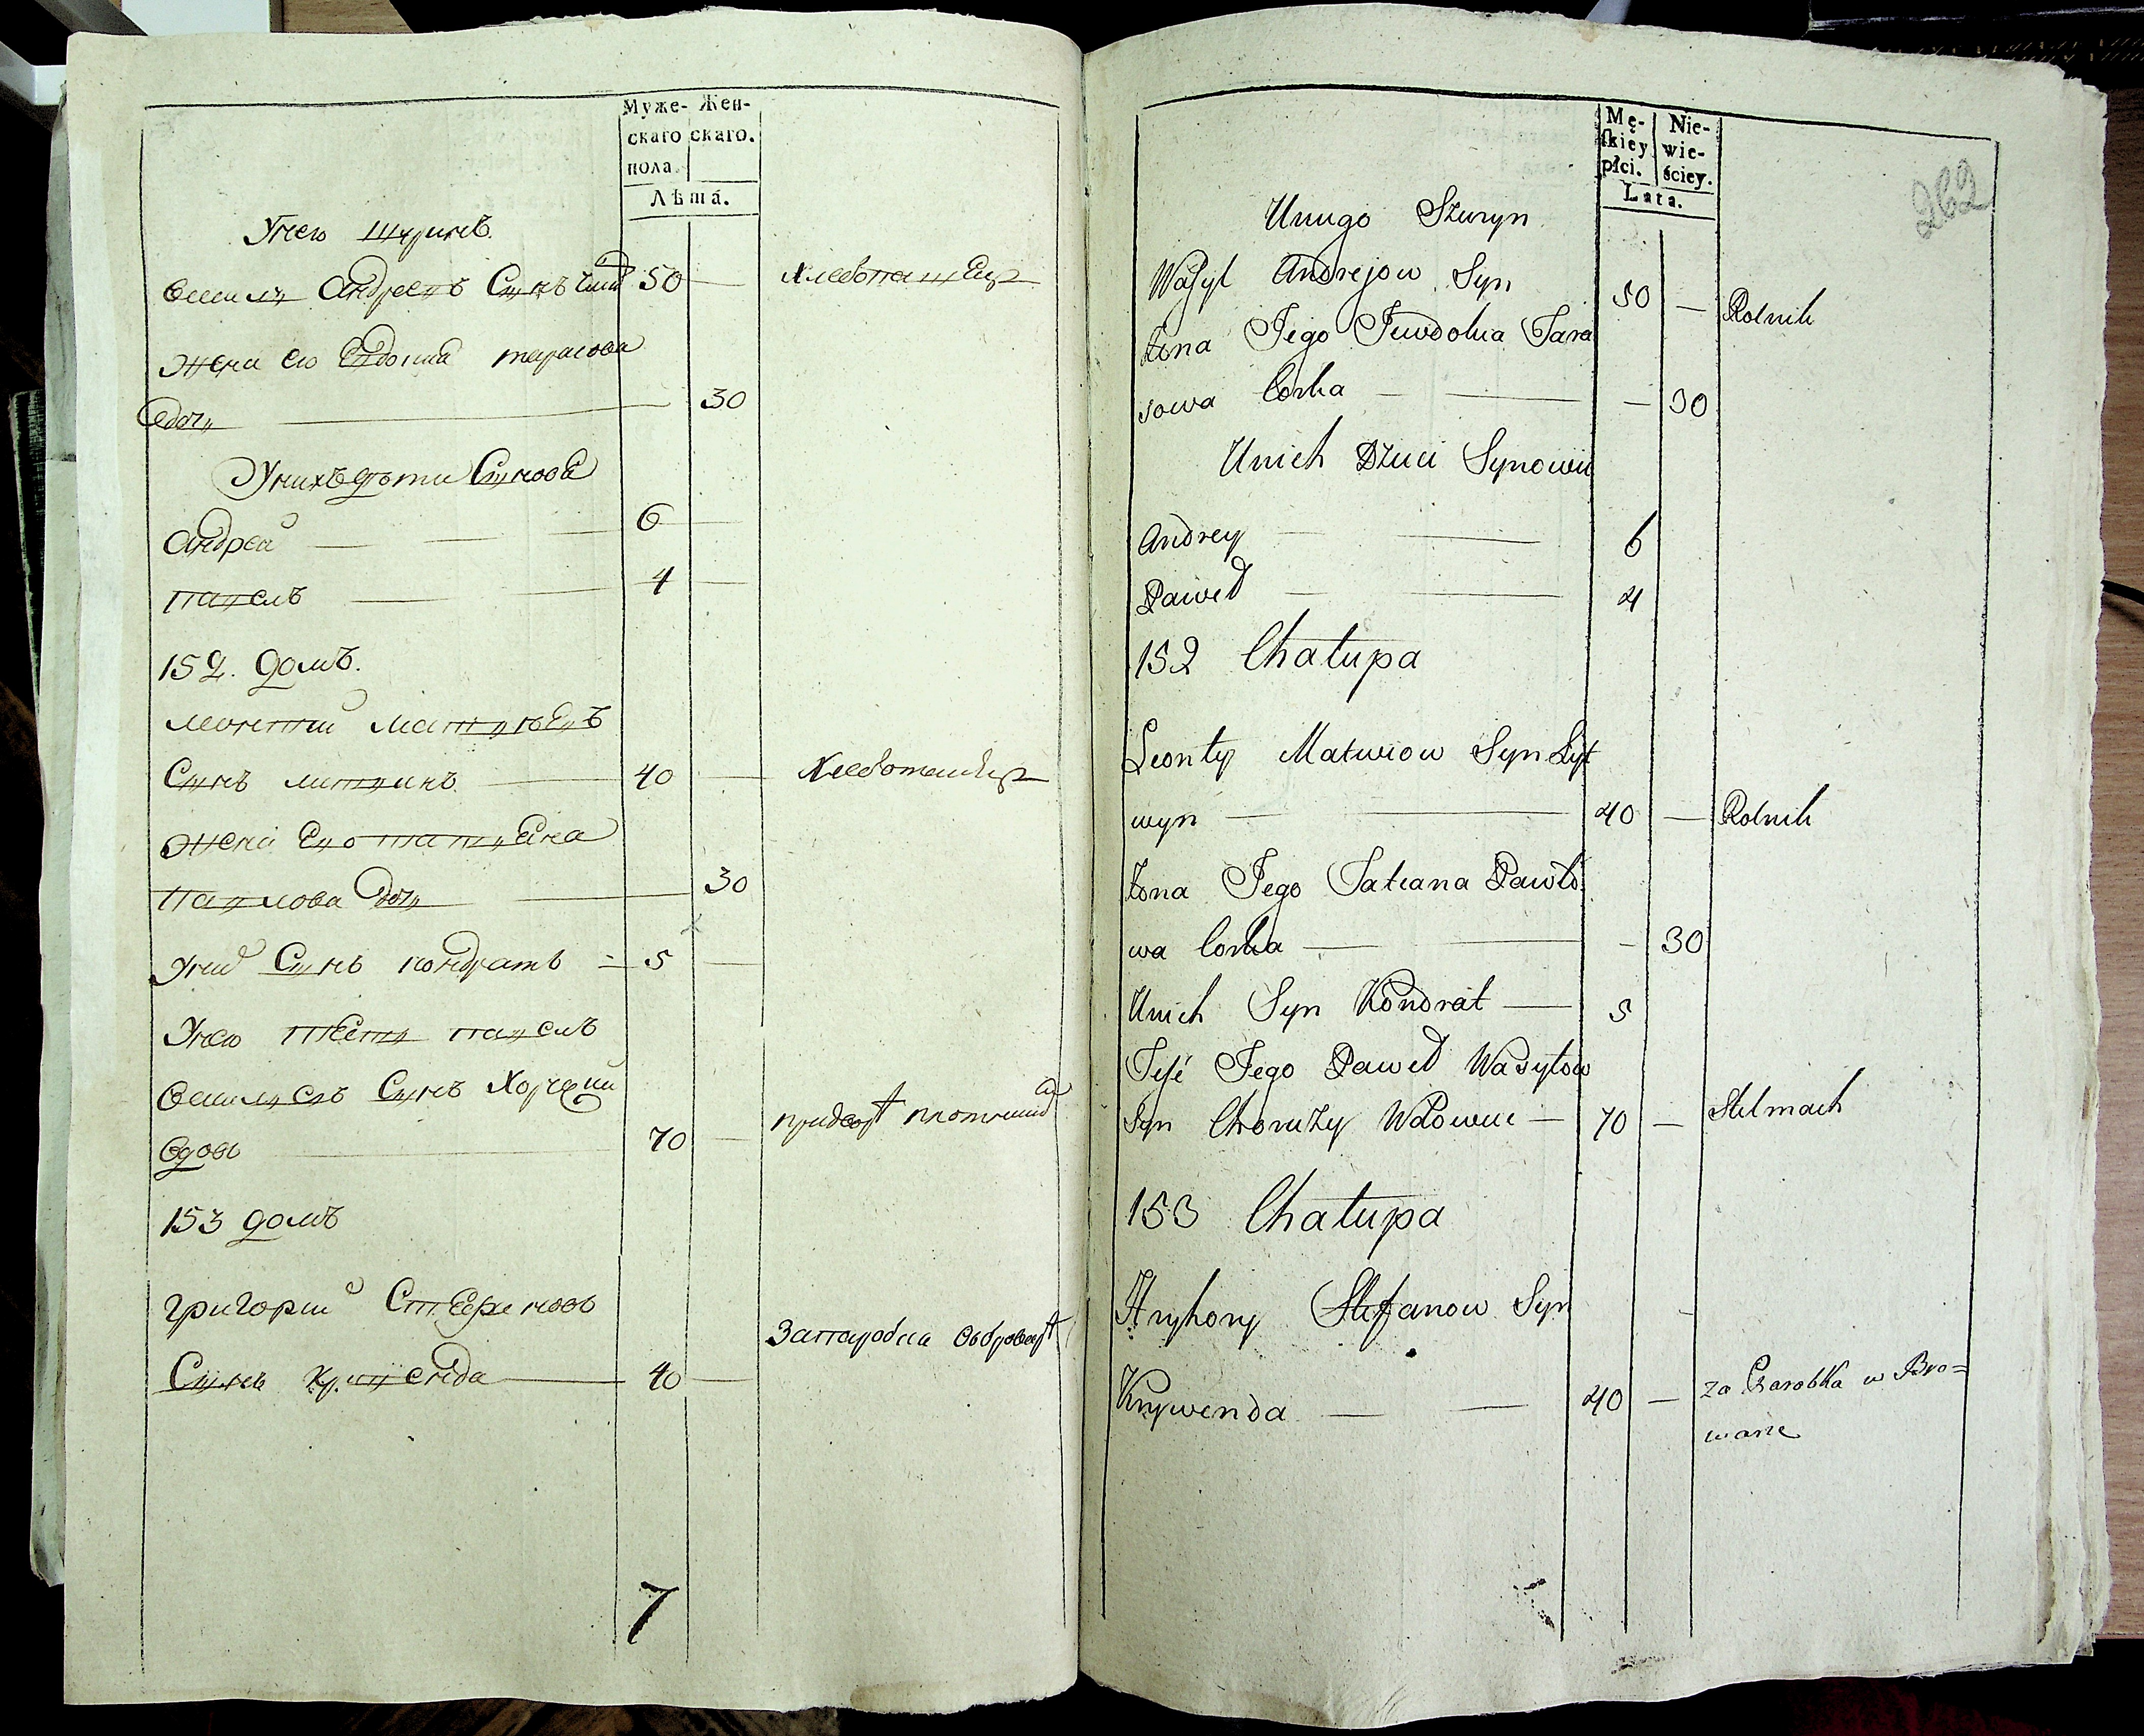 Муже- Жен-
скаго скаго.
пола.
Лѣта.
Унего Шуринъ
василь Андреевъ Сынъ 50 — хлебопашецъ
жена его Евдокиа тарасова
дочь — 30
Унихъ дѣти Сынове
Андрей — 6 —
павелъ — 4 —
152. домъ.
леонтий Матвѣевъ
Сынъ литвинъ — 40 — хлебопашецъ
жена Ево татьяна
павлова дочь — 30
Уних Сынъ кондратъ — 5 —
Унего тесть павелъ
василевъ Сынъ Хоружий
вдовъ — 70 —
153 домъ
григорий Стефановъ
Сынъ кривенда — 40 —
7
Mę- Nie-
skiey wie-
płci. ściey.
Lata.
262
Uniego Szuryn
Wasyl Andrejow Syn 50 — Rolnik
żona Jego Jewdokia Tara
sowa Corka — — 30
Unich Dzieci Synowie
Andrey — 6
Paweł — 4
152 Chałupa
Leonty Matwiow Syn Lyt
wyn — 40 — Rolnik
żona Jego Tatiana Pawło
wa Corka — — 30
Unich Syn Kondrat — 5
Teść Jego Paweł Wasylow
Syn Choruży Wdowiec — 70 — Stelmach
153 Chałupa
Hryhory Stefanow Syn
Krywenda — 40 — za Parobka w Bro=
warze